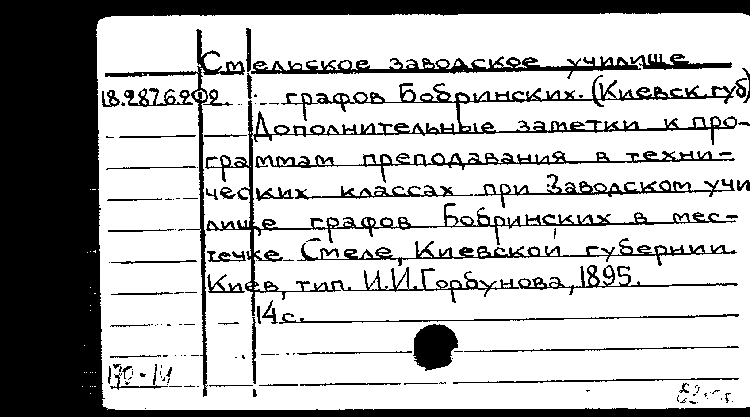 Смельское заводское училище
18.287.6.202. графов Бобринских. (Киевск.губ)
Дополнительные заметки к про-
граммам преподавания в техни-
ческих классах при Заводском учи
лище графов Бобринских в мес-
течке Смеле, Киевской губернии.
Киев, тип. И.И.Горбунова, 1895.
14с.